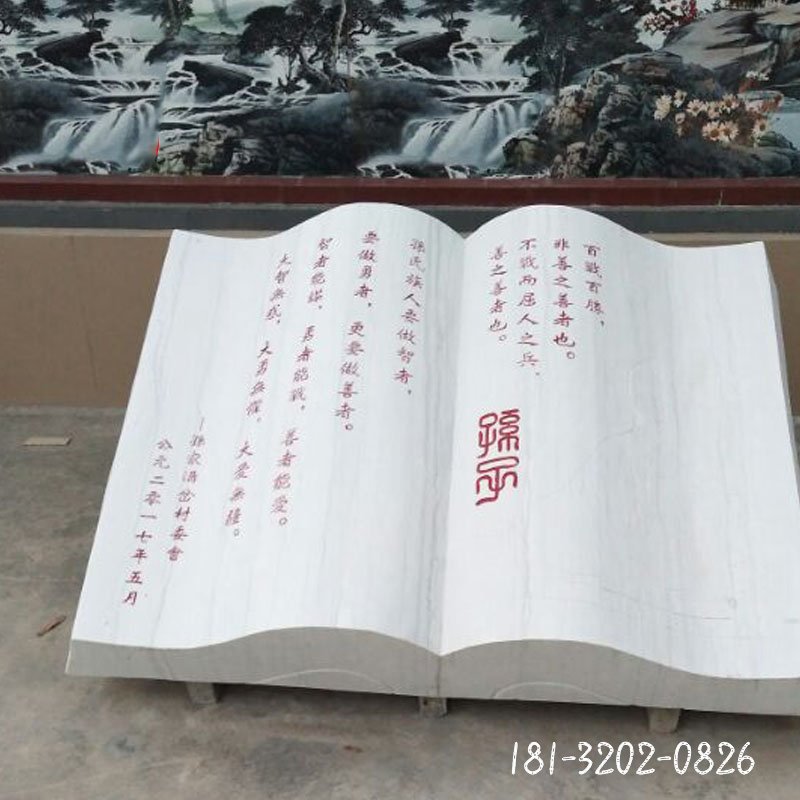 百戰百勝，
非善之善者也。
不戰而屈人之兵，
善之善者也。
孫子
孫氏族人要做智者，
要做勇者，更要做善者。
智者能謀，勇者能戰，善者能愛。
大智無惑，大勇無懼，大愛無疆。
—孫家溝岔村委會
公元二零一七年五月
181-3202-0826